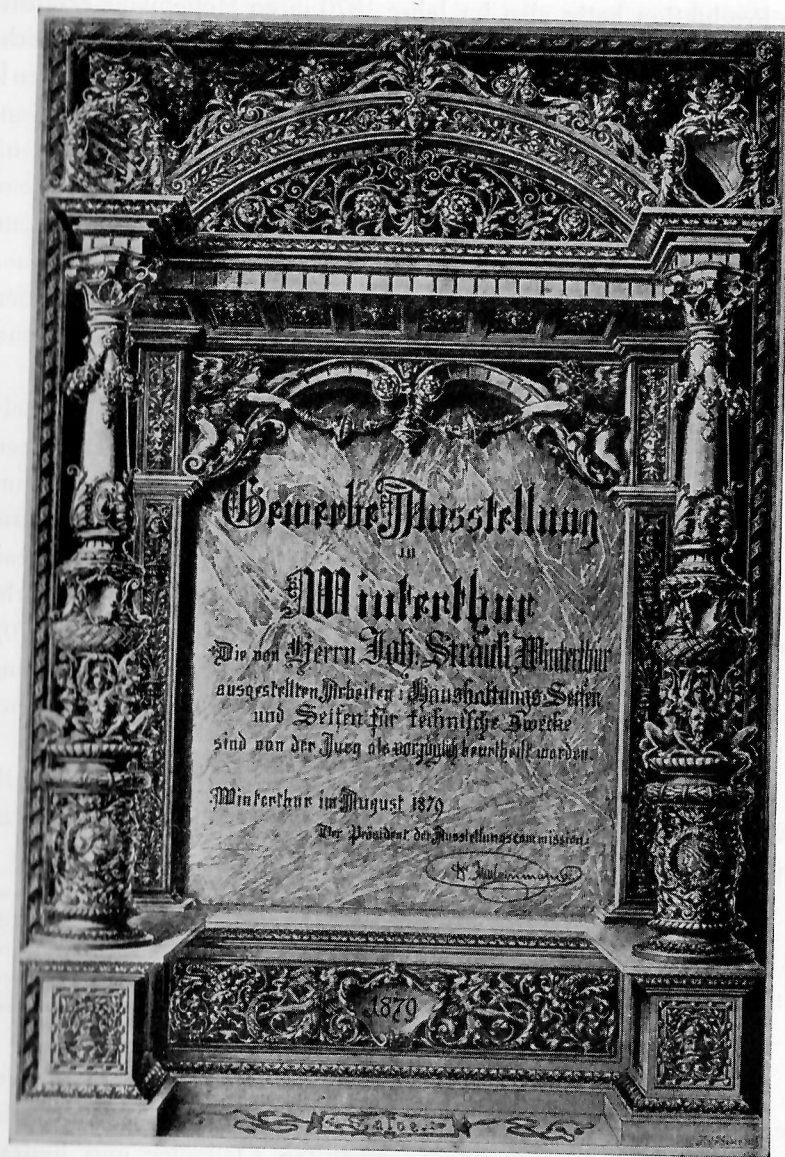 Gewerbe Ausstellung
in
Winterthur
Die von Herrn Joh: Sträuli, Winterthur
ausgestellten Arbeiten: Haushaltungs-Seifen
und Seifen für technische Zwecke
sind von der Jury als vorzüglich beurtheilt worden.
Winterthur im August 1879
Der Präsident der Ausstellungscommission:
1879
Salve